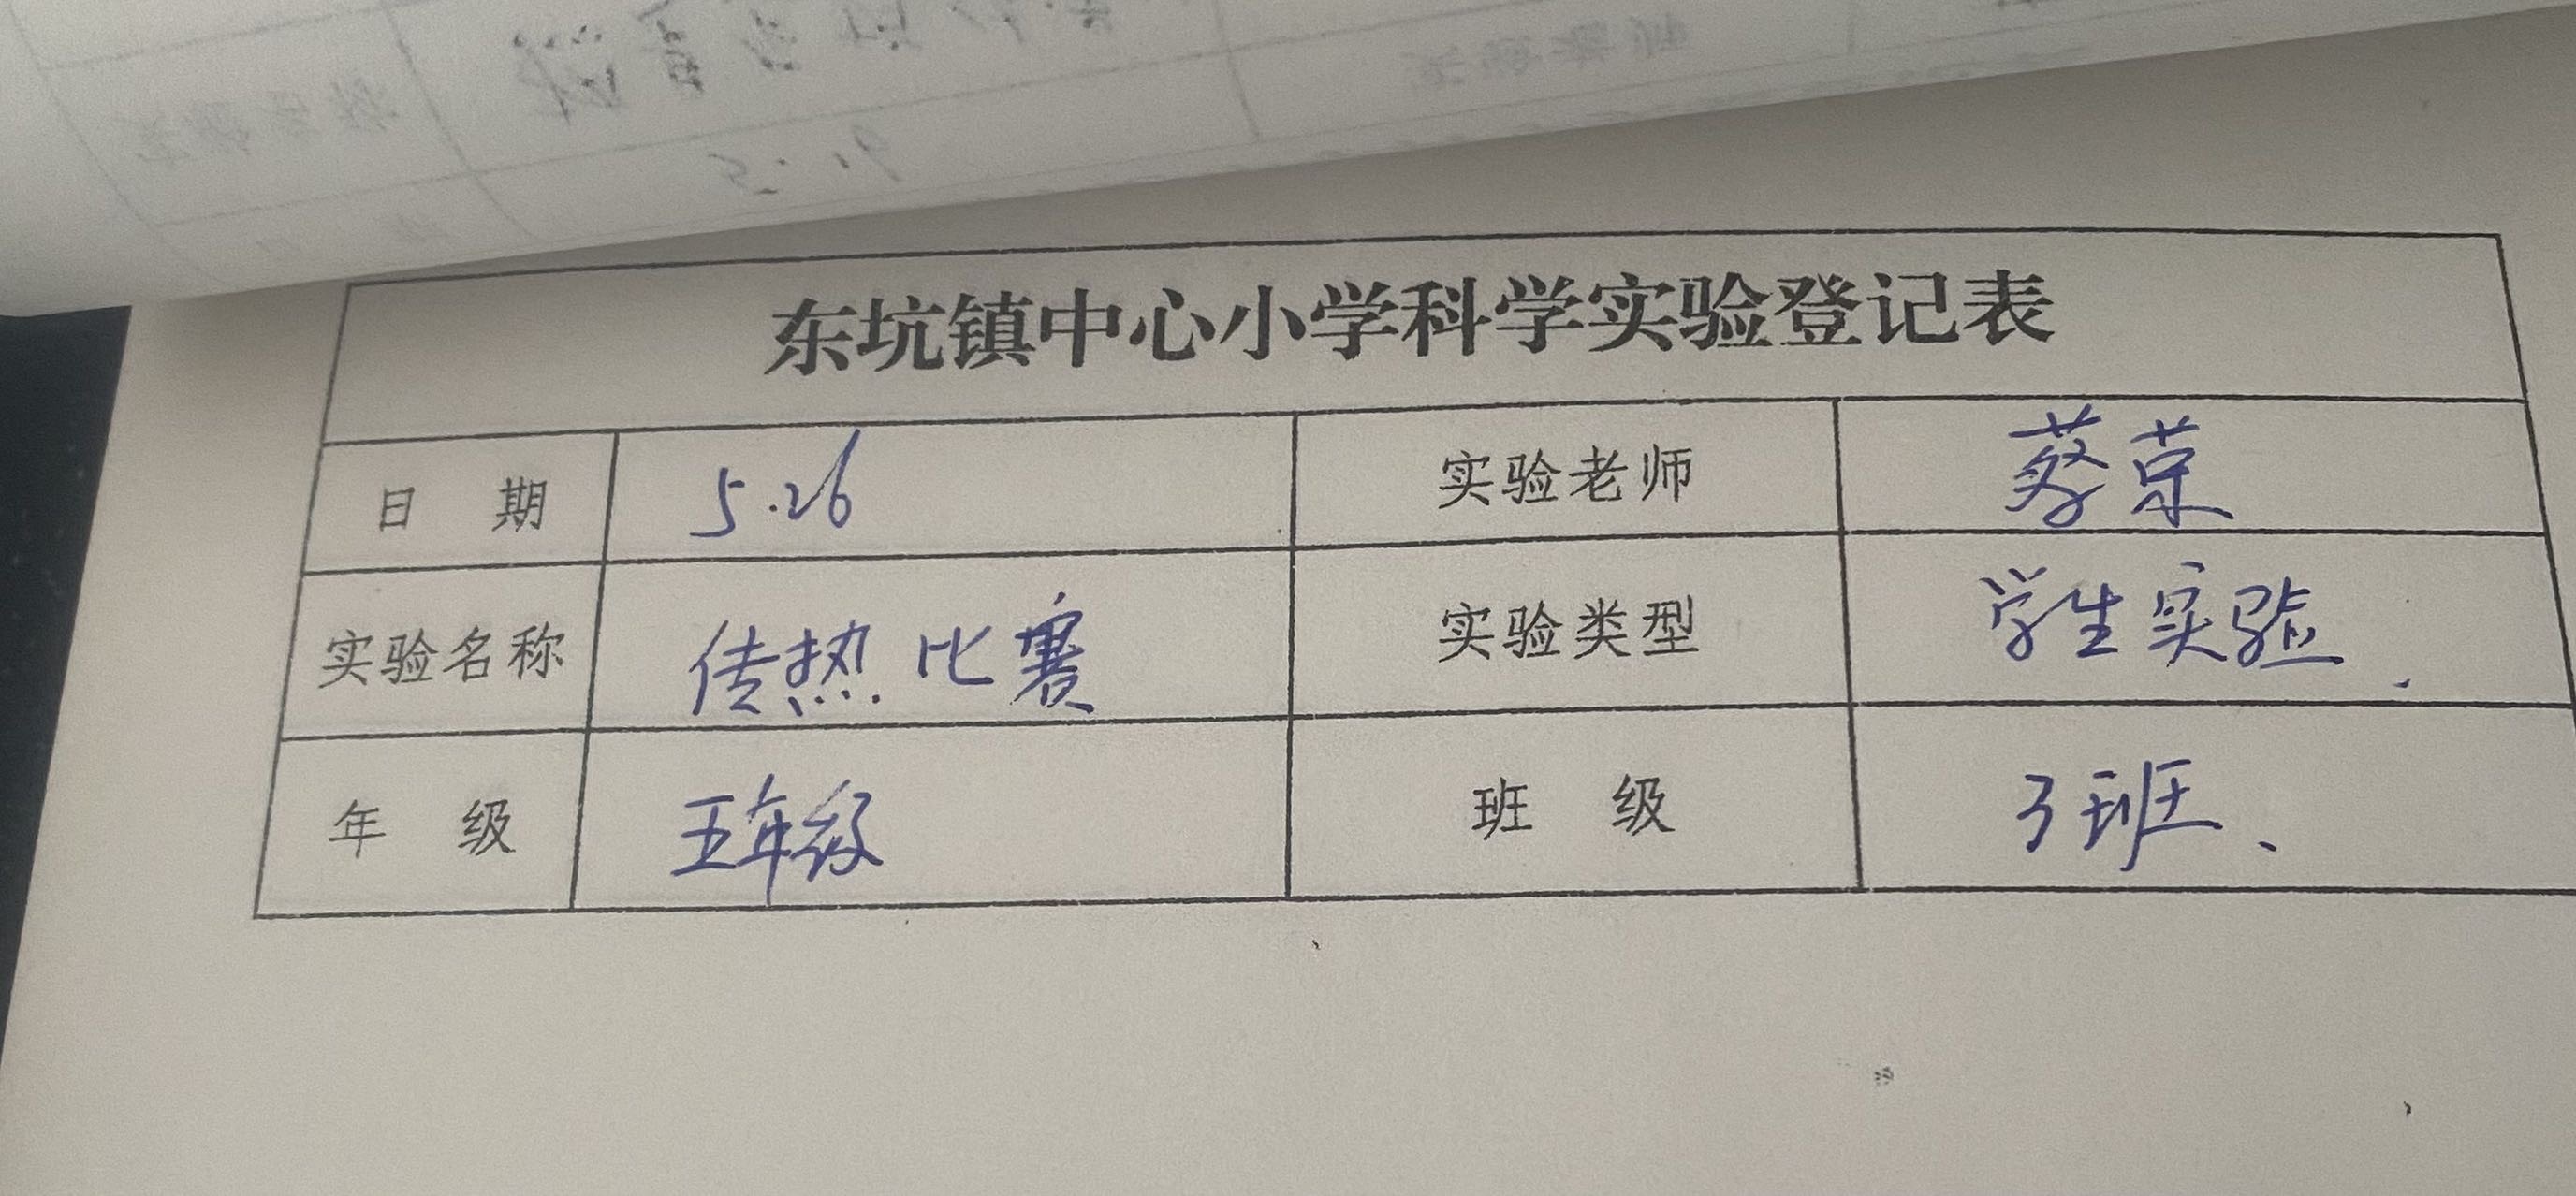 东坑镇中心小学科学实验登记表
日 期 5.26 实验老师 蔡荣
实验名称 传热比赛 实验类型 学生实验
年 级 五年级 班 级 3班、